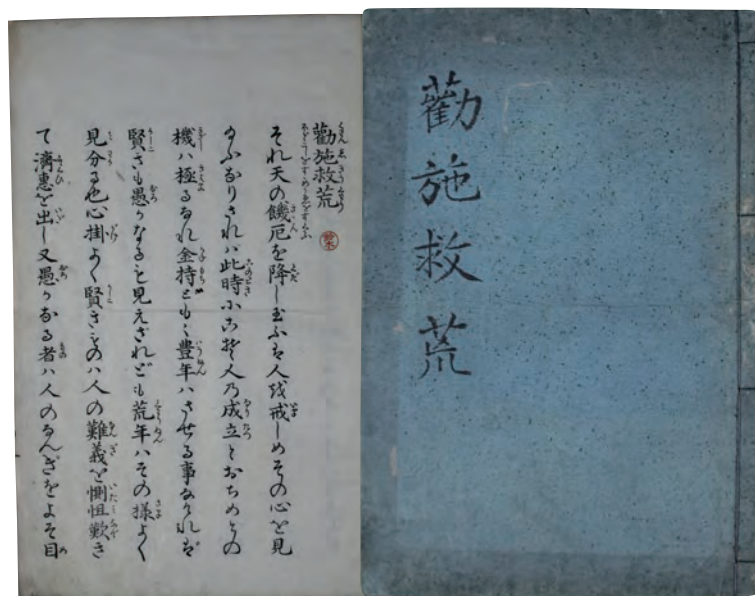 勸施救荒
勸施救荒
それ天の饑厄を降し玉ふは人を戒しめその心を見
玉ふなりされハ此時にこそ人の成立とおちめとの
機ハ極るなれ金持とも〱豊年ハさせる事なけれバ
賢さも愚かなるも見えざれども荒年ハその様よく
見分る也心掛よく賢きものハ人の難義を惻怛歎き
て濟惠を出し又愚かなる者ハ人のなんぎをよそ目